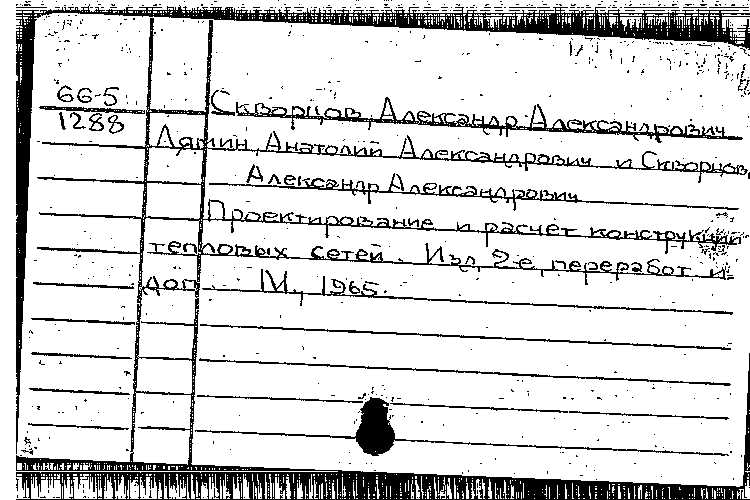 66-5 Скворцов, Александр Александрович
1288 Лямин, Анатолий Александрович и Скворцов,
Александр Александрович
Проектирование и расчёт конструкций
тепловых сетей. Изд. 2-е, переработ и
доп. М., 1965.